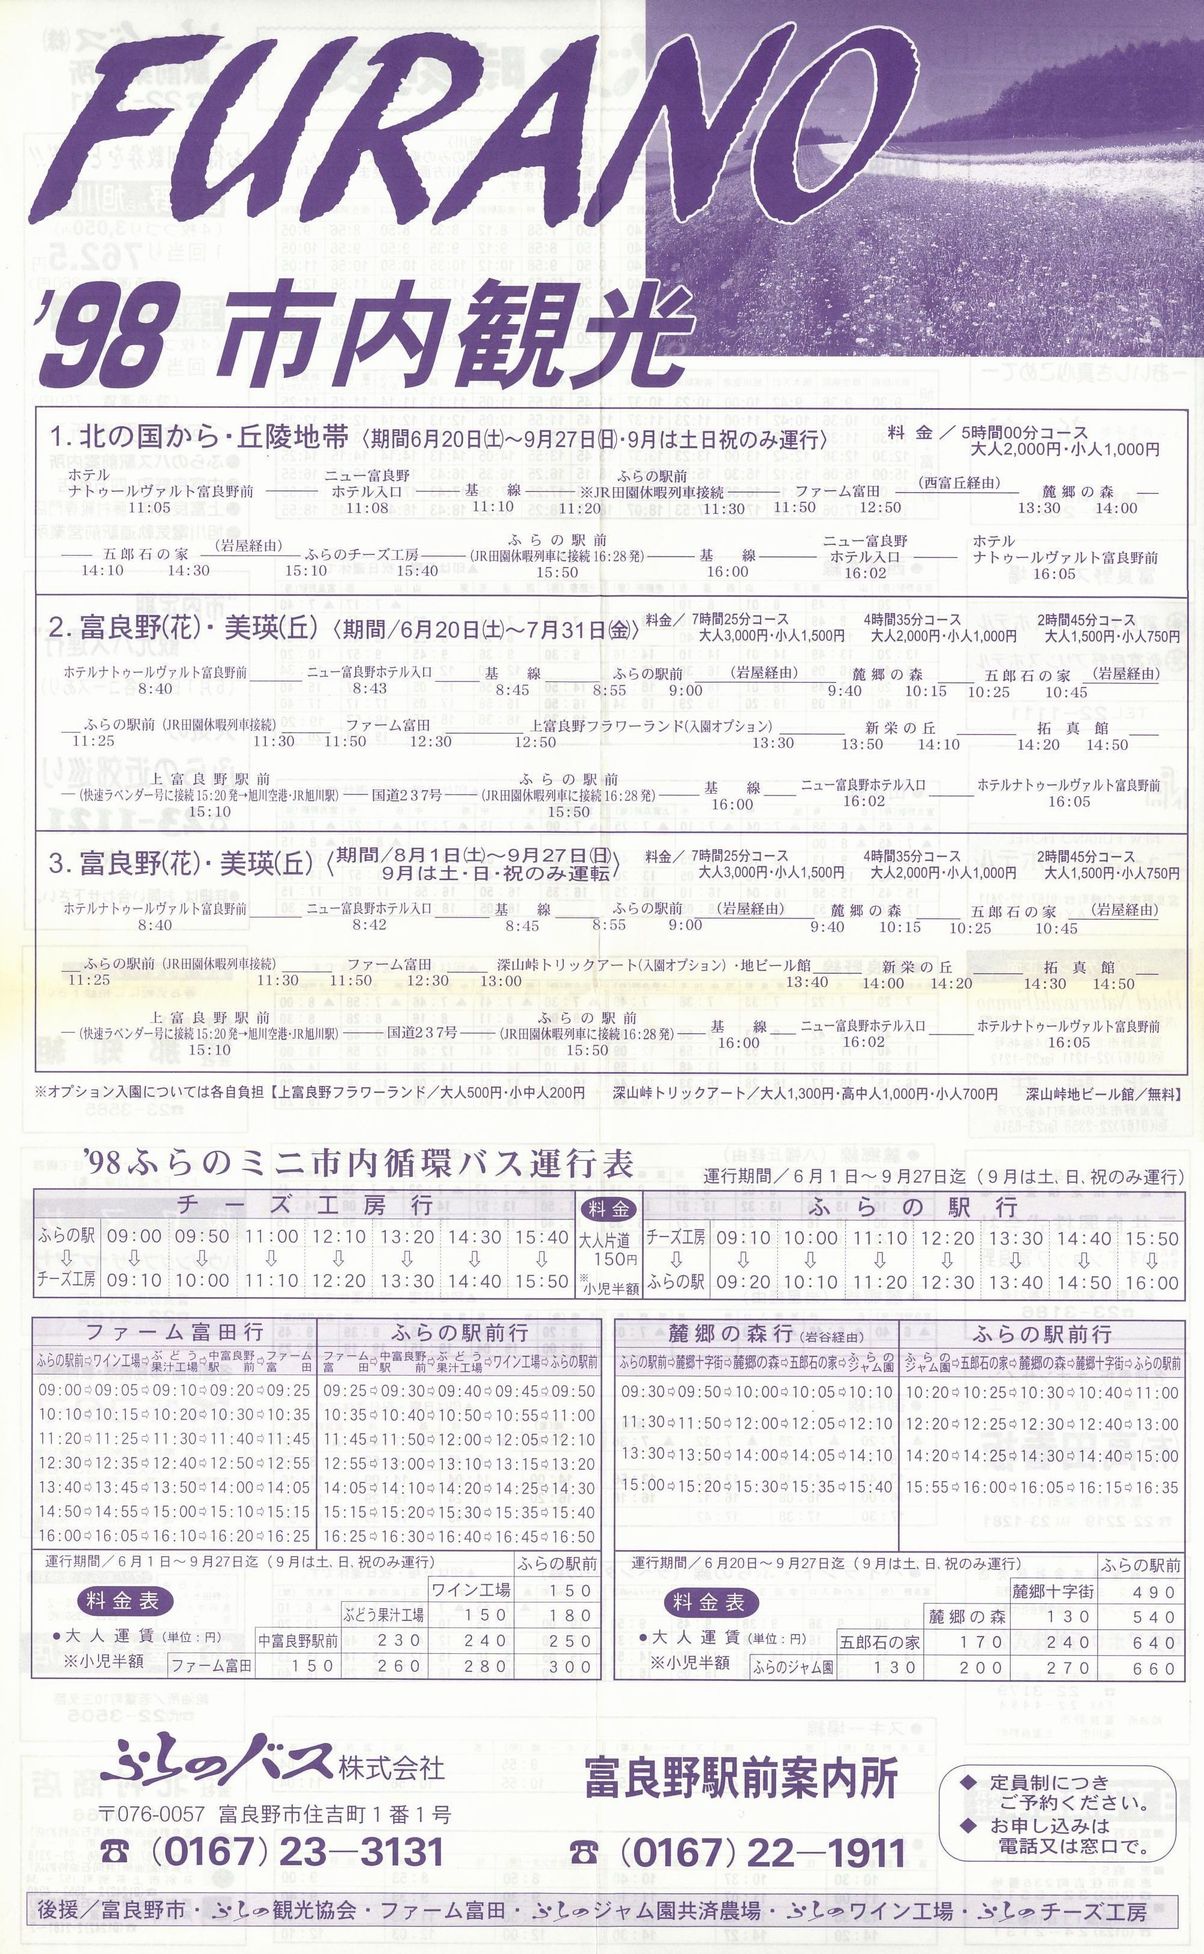 FURANO
'98 市内観光
1. 北の国から・丘陵地帯〈期間6月20日㈯〜9月27日㈰・9月は土日祝のみ運行〉
料 金／5時間00分コース
大人2,000円・小人1,000円
ホテル ナトゥールヴァルト富良野前 11:05
ニュー富良野 ホテル入口 11:08
基 線 11:10
ふらの駅前 ※JR田園休暇列車接続 11:20 11:30
ファーム富田 11:50 12:50
（西富丘経由）
麓郷の森 13:30 14:00
五郎石の家 14:10 14:30
（岩屋経由）
ふらのチーズ工房 15:10 15:40
ふらの駅前 （JR田園休暇列車に接続16:28発） 15:50
基 線 16:00
ニュー富良野 ホテル入口 16:02
ホテル ナトゥールヴァルト富良野前 16:05
2. 富良野(花)・美瑛(丘)〈期間/6月20日㈯〜7月31日㈮〉
料金／7時間25分コース 4時間35分コース 2時間45分コース
大人3,000円・小人1,500円 大人2,000円・小人1,000円 大人1,500円・小人750円
ホテルナトゥールヴァルト富良野前 8:40
ニュー富良野ホテル入口 8:43
基 線 8:45
ふらの駅前 8:55 9:00
（岩屋経由）
麓郷の森 9:40 10:15
五郎石の家 10:25 10:45
（岩屋経由）
ふらの駅前（JR田園休暇列車接続） 11:25 11:30
ファーム富田 11:50 12:30
上富良野フラワーランド（入園オプション） 12:50 13:30
新栄の丘 13:50 14:10
拓真館 14:20 14:50
上富良野駅前 （快速ラベンダー号に接続15:20発→旭川空港・JR旭川駅） 15:10
国道237号
ふらの駅前 （JR田園休暇列車に接続16:28発） 15:50
基 線 16:00
ニュー富良野ホテル入口 16:02
ホテルナトゥールヴァルト富良野前 16:05
3. 富良野(花)・美瑛(丘)〈期間/8月1日㈯〜9月27日㈰ 9月は土・日・祝のみ運転〉
料金／7時間25分コース 4時間35分コース 2時間45分コース
大人3,000円・小人1,500円 大人2,000円・小人1,000円 大人1,500円・小人750円
ホテルナトゥールヴァルト富良野前 8:40
ニュー富良野ホテル入口 8:42
基 線 8:45
ふらの駅前 8:55 9:00
（岩屋経由）
麓郷の森 9:40 10:15
五郎石の家 10:25 10:45
（岩屋経由）
ふらの駅前（JR田園休暇列車接続） 11:25 11:30
ファーム富田 11:50 12:30
深山峠トリックアート（入園オプション）・地ビール館 13:00 13:40
新栄の丘 14:00 14:20
拓真館 14:30 14:50
上富良野駅前 （快速ラベンダー号に接続15:20発→旭川空港・JR旭川駅） 15:10
国道237号
ふらの駅前 （JR田園休暇列車に接続16:28発） 15:50
基 線 16:00
ニュー富良野ホテル入口 16:02
ホテルナトゥールヴァルト富良野前 16:05
※オプション入園については各自負担【上富良野フラワーランド／大人500円・小中人200円 深山峠トリックアート／大人1,300円・高中人1,000円・小人700円 深山峠地ビール館／無料】
'98ふらのミニ市内循環バス運行表
運行期間／6月1日〜9月27日迄（9月は土、日、祝のみ運行）
チーズ工房行
ふらの駅 09:00 09:50 11:00 12:10 13:20 14:40 15:40
⇩ ⇩ ⇩ ⇩ ⇩ ⇩ ⇩ ⇩
チーズ工房 09:10 10:00 11:10 12:20 13:30 14:40 15:50
料金
大人片道
150円
※小児半額
ふらの駅行
チーズ工房 09:10 10:00 11:10 12:20 13:30 14:40 15:50
⇩ ⇩ ⇩ ⇩ ⇩ ⇩ ⇩ ⇩
ふらの駅 09:20 10:10 11:20 12:30 13:40 14:50 16:00
ファーム富田行
ふらの駅前⇨ワイン工場⇨ぶどう果汁工場⇨中富良野駅前⇨ファーム富田
09:00⇨09:05⇨09:10⇨09:20⇨09:25
10:10⇨10:15⇨10:20⇨10:30⇨10:35
11:20⇨11:25⇨11:30⇨11:40⇨11:45
12:30⇨12:35⇨12:40⇨12:50⇨12:55
13:40⇨13:45⇨13:50⇨14:00⇨14:05
14:50⇨14:55⇨15:00⇨15:10⇨15:15
16:00⇨16:05⇨16:10⇨16:20⇨16:25
ふらの駅前行
ファーム富田⇨中富良野駅前⇨ぶどう果汁工場⇨ワイン工場⇨ふらの駅前
09:25⇨09:30⇨09:40⇨09:45⇨09:50
10:35⇨10:40⇨10:50⇨10:55⇨11:00
11:45⇨11:50⇨12:00⇨12:05⇨12:10
12:55⇨13:00⇨13:10⇨13:15⇨13:20
14:05⇨14:10⇨14:20⇨14:25⇨14:30
15:15⇨15:20⇨15:30⇨15:35⇨15:40
16:25⇨16:30⇨16:40⇨16:45⇨16:50
運行期間／6月1日〜9月27日迄（9月は土、日、祝のみ運行） ふらの駅前
ワイン工場 150
料金表
ぶどう果汁工場 150 180
●大人運賃（単位：円） 中富良野駅前 230 240 250
※小児半額 ファーム富田 150 260 280 300
麓郷の森行（岩谷経由）
ふらの駅前⇨麓郷十字街⇨麓郷の森⇨五郎石の家⇨ふらのジャム園
09:30⇨09:50⇨10:00⇨10:05⇨10:10
11:30⇨11:50⇨12:00⇨12:05⇨12:10
13:30⇨13:50⇨14:00⇨14:05⇨14:10
15:00⇨15:20⇨15:30⇨15:35⇨15:40
ふらの駅前行
ふらのジャム園⇨五郎石の家⇨麓郷の森⇨麓郷十字街⇨ふらの駅前
10:20⇨10:25⇨10:30⇨10:40⇨11:00
12:20⇨12:25⇨12:30⇨12:40⇨13:00
14:20⇨14:25⇨14:30⇨14:40⇨15:00
15:55⇨16:00⇨16:05⇨16:15⇨16:35
運行期間／6月20日〜9月27日迄（9月は土、日、祝のみ運行） ふらの駅前
麓郷十字街 490
料金表
麓郷の森 130 540
●大人運賃（単位：円） 五郎石の家 170 240 640
※小児半額 ふらのジャム園 130 200 270 660
ふらのバス株式会社
〒076-0057 富良野市住吉町1番1号
☎（0167）23―3131
富良野駅前案内所
☎（0167）22―1911
◆ 定員制につき
ご予約ください。
◆ お申し込みは
電話又は窓口で。
後援／富良野市・ふらの観光協会・ファーム富田・ふらのジャム園共済農場・ふらのワイン工場・ふらのチーズ工房